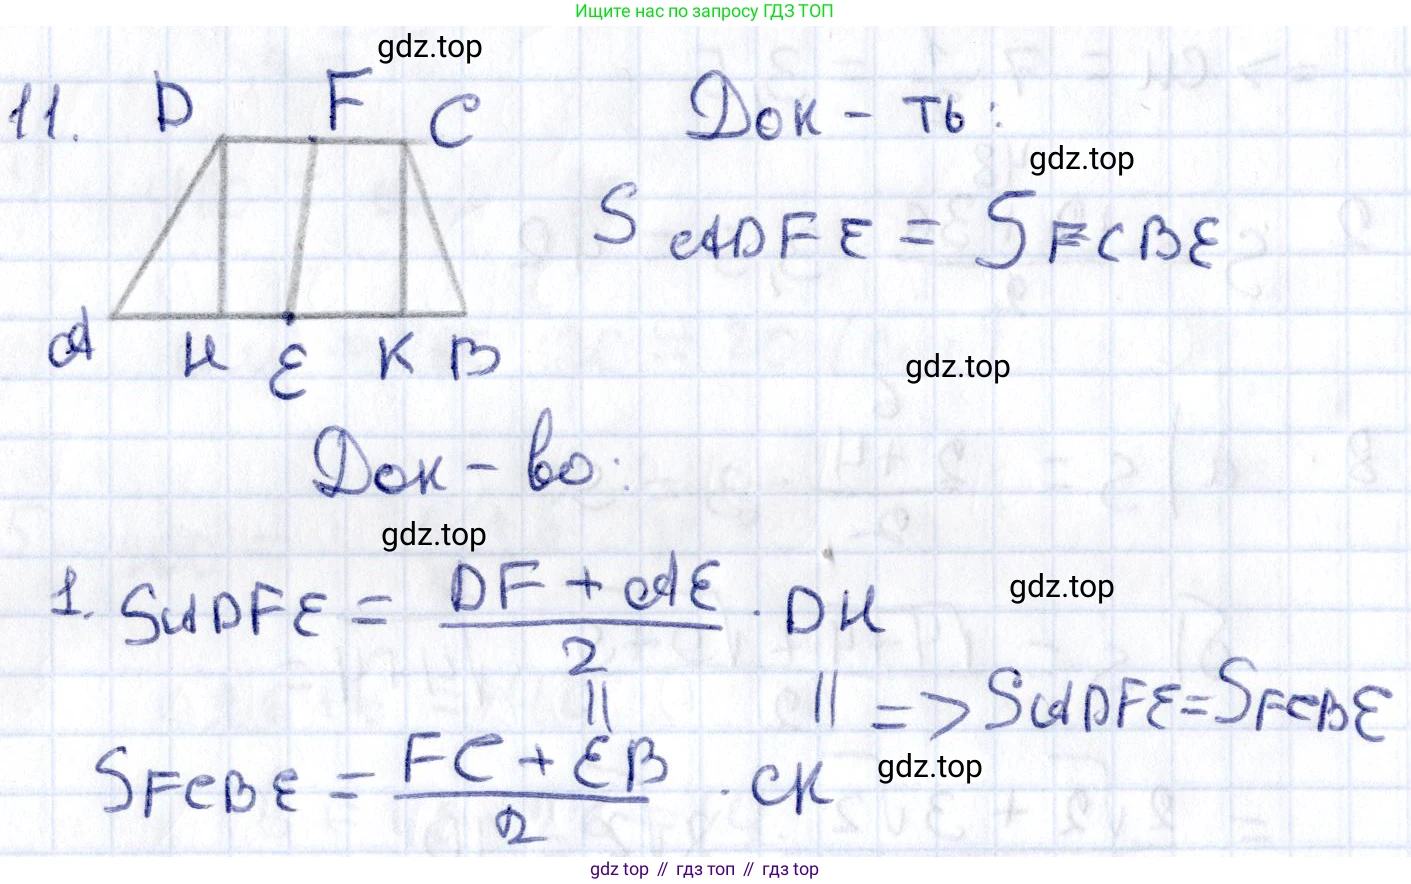 Ищите нас по запросу ГДЗ ТОП
gdz.top
11. D F C Док-ть:
gdz.top
S ADFE = S FCBE
A H E K B
gdz.top
Док-во:
gdz.top
1. SADFE = DF + AE / 2 · DH
gdz.top
|| || => SADFE = SFCBE
SFCBE = FC + EB / 2 · CK
gdz.top
gdz top // гдз топ // gdz top